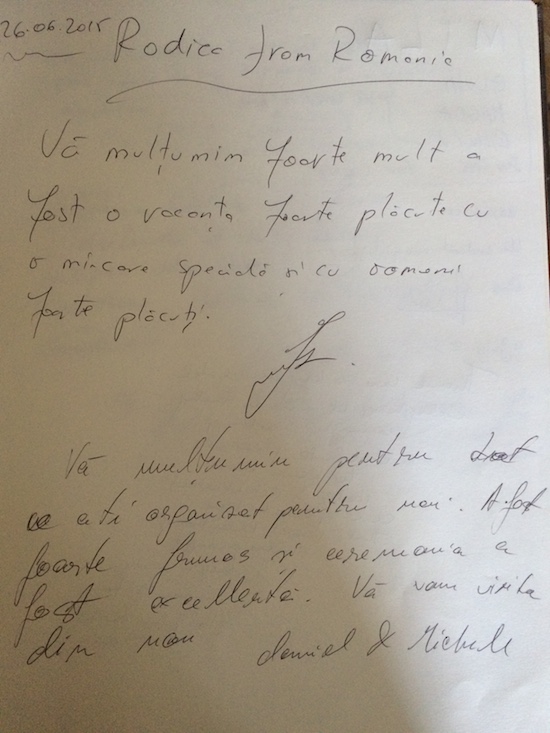 26.06.2015
Rodica from Romania
Vă mulțumim foarte mult a
fost o vacanța foarte plăcute cu
o mîncare specială și cu oameni
foarte plăcuți.
Vă mulțumim pentru tot
ce ati organizat pentru noi. A fost
foarte frumos si ceremonia a
fost excellentă. Vă vom vizita
din nou Daniel & Michele